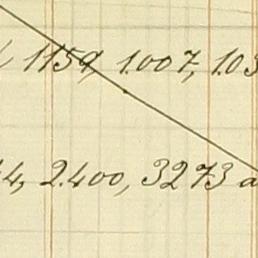 1159, 1.007, 1.03
4, 2.400, 3273 a